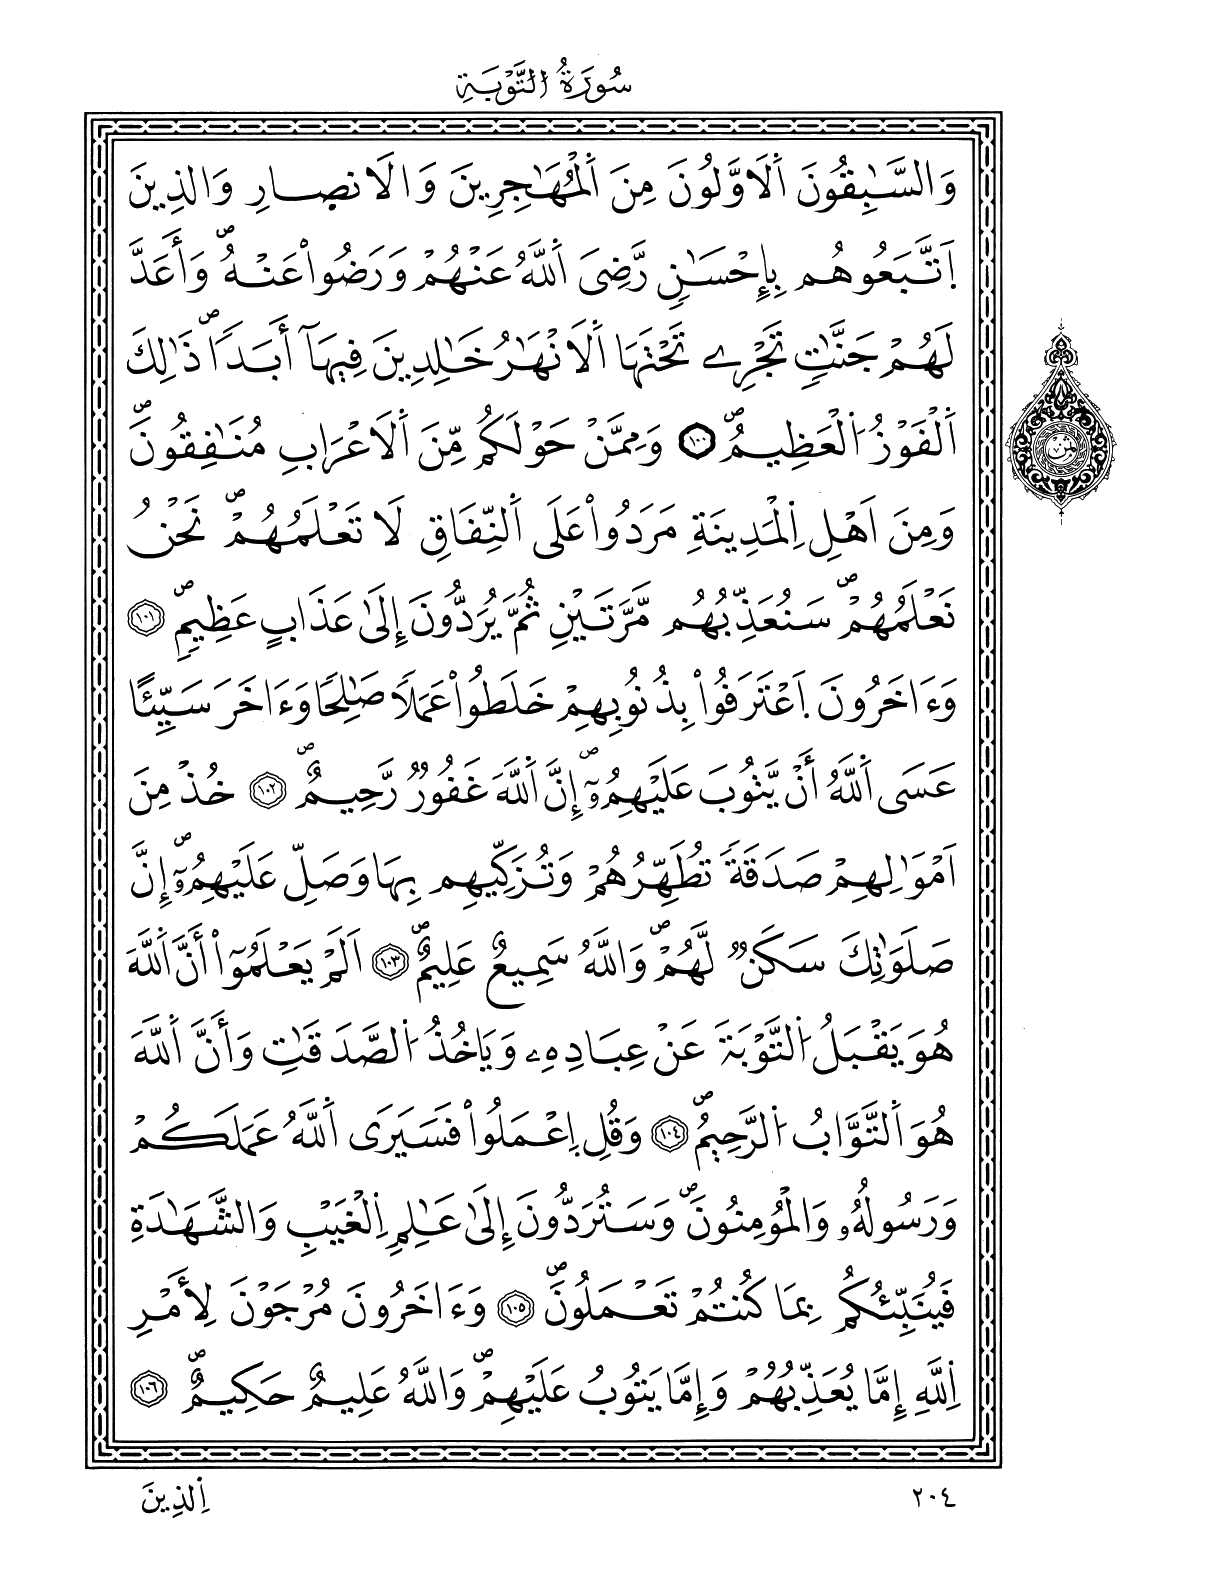 سُورَةُ التَّوْبَةِ
وَالسَّٰبِقُونَ اَ۬لَاوَّلُونَ مِنَ اَ۬لْمُهَٰجِرِينَ وَالَانصِارِ وَالذِينَ
اَتَّبَعُوهُم بِإِحْسَٰنٖ رَّضِيَ اَ۬للَّهُ عَنْهُمْ وَرَضُواْ عَنْهُۖ وَأَعَدَّ
لَهُمْ جَنَّٰتٖ تَجْرِے تَحْتَهَا اَ۬لَانْهَٰرُ خَٰلِدِينَ فِيهَآ أَبَداٗۖ ذَٰلِكَ
اَ۬لْفَوْزُ اُ۬لْعَظِيمُۖ ١٠٠ وَمِمَّنْ حَوْلَكُم مِّنَ اَ۬لَاعْرَابِ مُنَٰفِقُونَۖ
وَمِنَ اَهْلِ اِ۬لْمَدِينَةِ مَرَدُواْ عَلَى اَ۬لنِّفَاقِ لَا تَعْلَمُهُمْۖ نَحْنُ
نَعْلَمُهُمْۖ سَنُعَذِّبُهُم مَّرَّتَيْنِ ثُمَّ يُرَدُّونَ إِلَىٰ عَذَابٍ عَظِيمٖۖ ١٠١
وَءَاخَرُونَ اَ۪عْتَرَفُواْ بِذُنُوبِهِمْ خَلَطُواْ عَمَلاٗ صَٰلِحاٗ وَءَاخَرَ سَيِّئاً
عَسَى اَ۬للَّهُ أَنْ يَّتُوبَ عَلَيْهِمُۥٓۖ إِنَّ اَ۬للَّهَ غَفُورٞ رَّحِيمٌۖ ١٠٢ خُذْ مِنَ
اَمْوَٰلِهِمْ صَدَقَةٗ تُطَهِّرُهُمْ وَتُزَكِّيهِم بِهَا وَصَلِّ عَلَيْهِمُۥٓۖ إِنَّ
صَلَوَٰتِكَ سَكَنٞ لَّهُمْۖ وَاللَّهُ سَمِيعٌ عَلِيمٌۖ ١٠٣ اَلَمْ يَعْلَمُوٓاْ أَنَّ اَ۬للَّهَ
هُوَ يَقْبَلُ اُ۬لتَّوْبَةَ عَنْ عِبَادِهِۦ وَيَاخُذُ اُ۬لصَّدَقَٰتِ وَأَنَّ اَ۬للَّهَ
هُوَ اَ۬لتَّوَّابُ اُ۬لرَّحِيمُۖ ١٠٤ وَقُلِ اِ۪عْمَلُواْ فَسَيَرَى اَ۬للَّهُ عَمَلَكُمْ
وَرَسُولُهُۥ وَالْمُؤْمِنُونَۖ وَسَتُرَدُّونَ إِلَىٰ عَٰلِمِ اِ۬لْغَيْبِ وَالشَّهَٰدَةِ
فَيُنَبِّئُكُم بِمَا كُنتُمْ تَعْمَلُونَۖ ١٠٥ وَءَاخَرُونَ مُرْجَوْنَ لِأَمْرِ
اِ۬للَّهِ إِمَّا يُعَذِّبُهُمْ وَإِمَّا يَتُوبُ عَلَيْهِمْۖ وَاللَّهُ عَلِيمٌ حَكِيمٌۖ ١٠٦
ثمن
٢٠٤
اِ۬لذِينَ